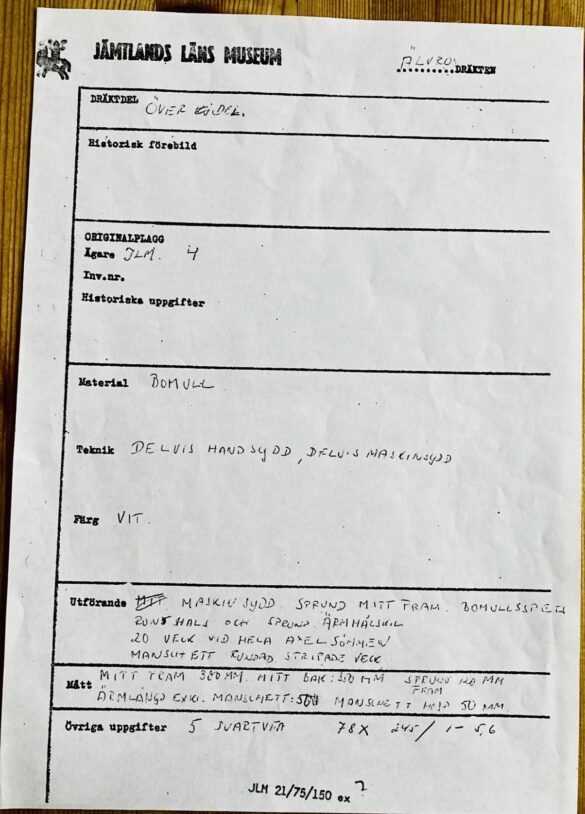 JÄMTLANDS LÄNS MUSEUM
ÄLVRO DRÄKTEN
DRÄKTDEL ÖVER
Historisk förebild
ORIGINALPLAGG
Ägare JLM. 4
Inv.nr.
Historiska uppgifter
Material BOMULL
Teknik DELVIS HANDSYDD, DELVIS MASKINSYDD
Färg VIT.
Utförande MASKINSYDD. SPRUND MITT FRAM. BOMULLSSPETS
RUNT HALS OCH SPRUND. ÄRMHÅLSKIL
20 VECK VID HELA AXELSÖMMEN
MANSCHETT RUNDAD STRIPADE VECK
Mått MITT FRAM 380 MM. MITT BAK: MM SPRUND 120 MM
FRAM
ÄRMLÄNGD EXKL. MANSCHETT: MANSCHETT HÖJD 50 MM.
Övriga uppgifter 5 SVARTVITA 78X 245/ 1-5,6
JLM 21/75/150 ex 7